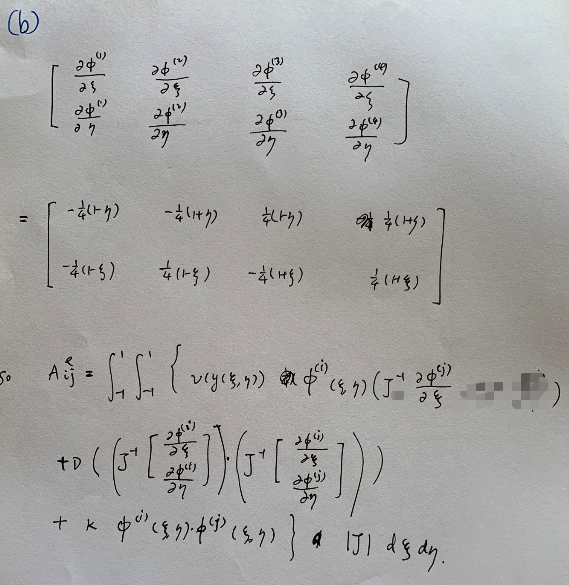 (b)
[ ∂ϕ⁽¹⁾/∂ξ ∂ϕ⁽²⁾/∂ξ ∂ϕ⁽³⁾/∂ξ ∂ϕ⁽⁴⁾/∂ξ
∂ϕ⁽¹⁾/∂η ∂ϕ⁽²⁾/∂η ∂ϕ⁽³⁾/∂η ∂ϕ⁽⁴⁾/∂η ]
= [ -1/4(1-η) -1/4(1+η) 1/4(1-η) 1/4(1+η)
-1/4(1-ξ) 1/4(1-ξ) -1/4(1+ξ) 1/4(1+ξ) ]
so A^e_ij = ∫₋₁¹ ∫₋₁¹ { v(y(ξ,η)) ϕ⁽ⁱ⁾(ξ,η) (J⁻¹ ∂ϕ⁽ʲ⁾/∂ξ )
+D ( (J⁻¹ [ ∂ϕ⁽ⁱ⁾/∂ξ ∂ϕ⁽ⁱ⁾/∂η ]) · (J⁻¹ [ ∂ϕ⁽ʲ⁾/∂ξ ∂ϕ⁽ʲ⁾/∂η ]) )
+ k ϕ⁽ⁱ⁾(ξ,η)·ϕ⁽ʲ⁾(ξ,η) } |J| dξ dη.